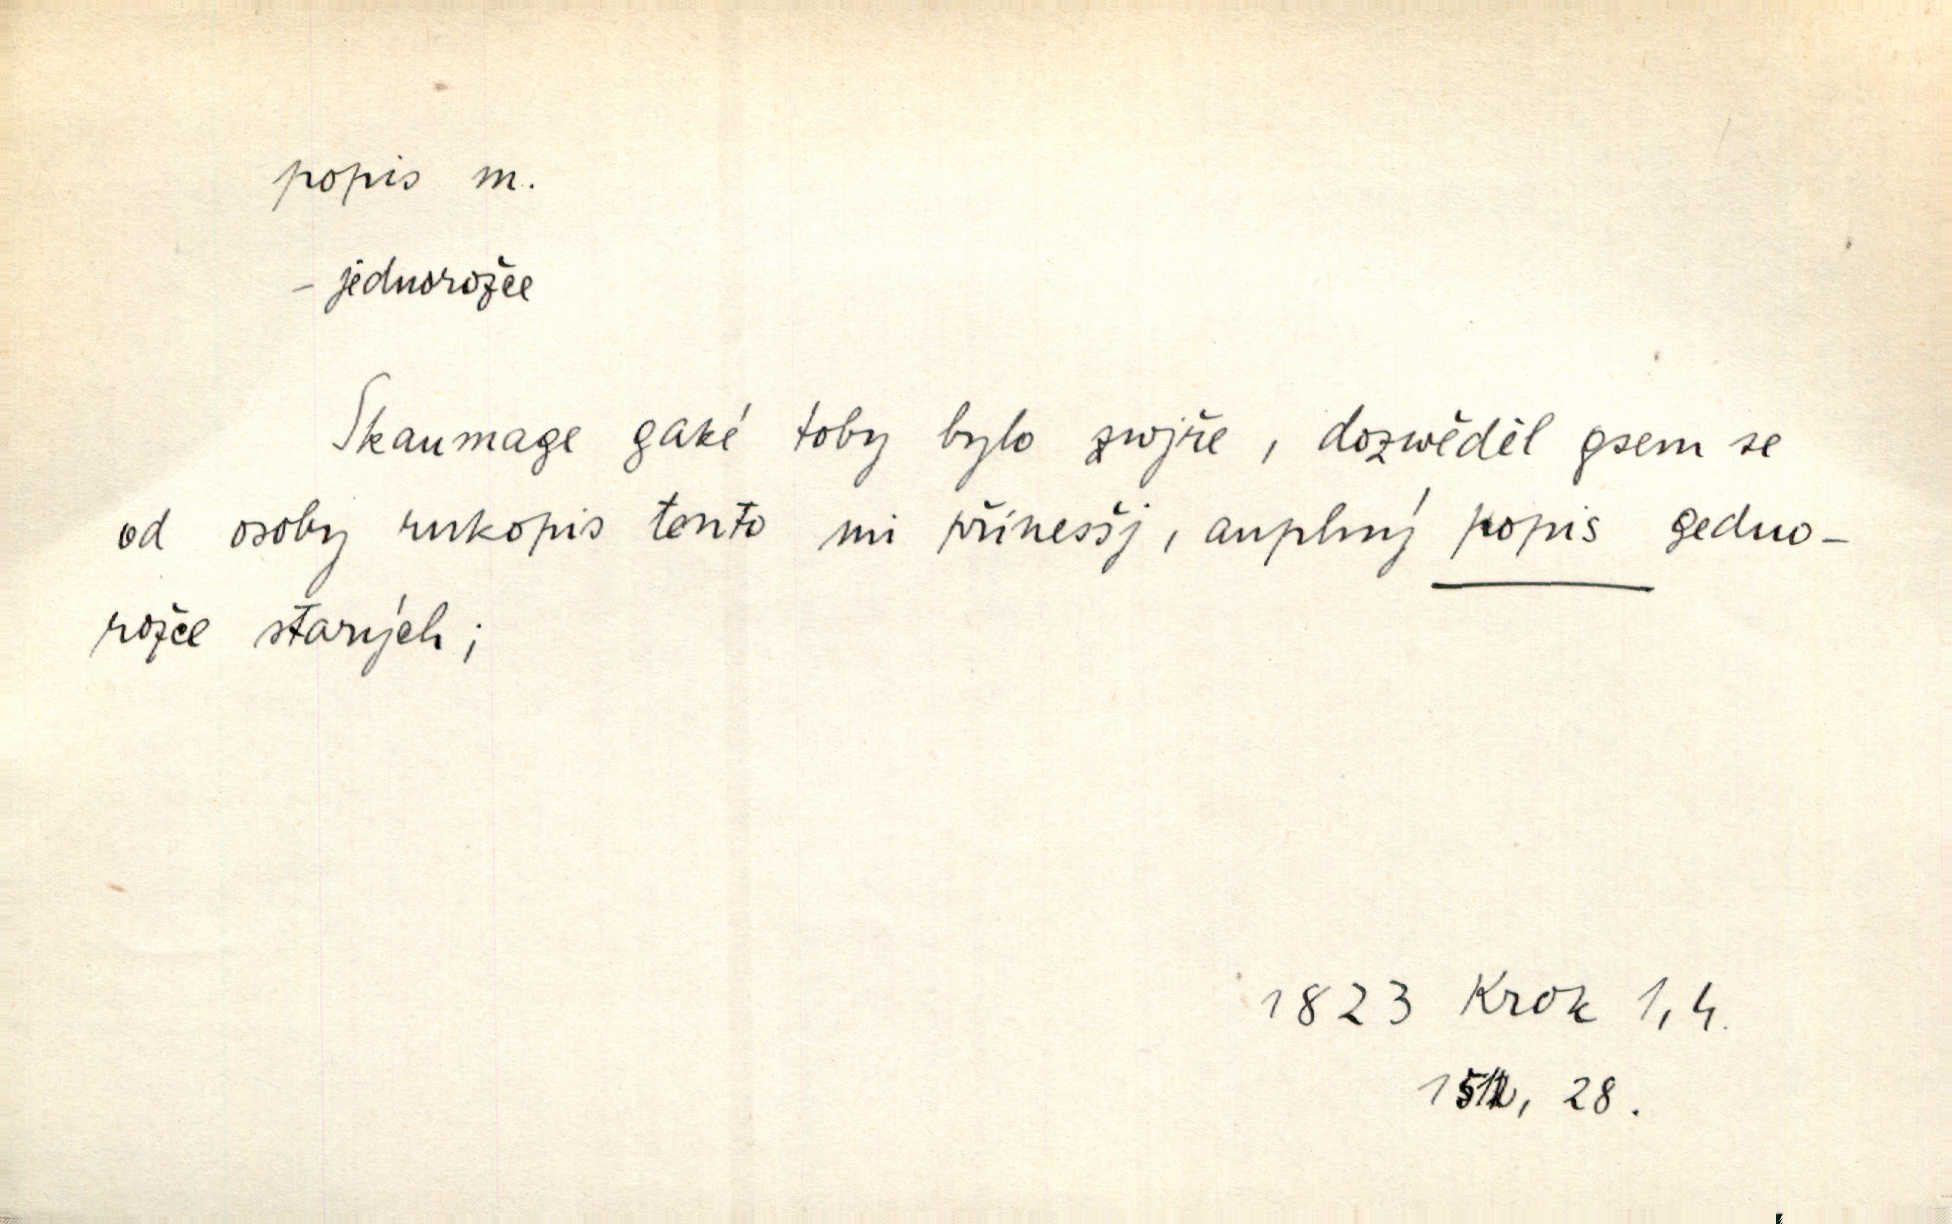 popis m.
– jednorožce
Skaumage gaké toby bylo zwjře, dozwěděl gsem se
od osoby rukopis tento mi přinesšj, auplný popis gedno-
rožce starých;
1823 Krok 1,4.
28.